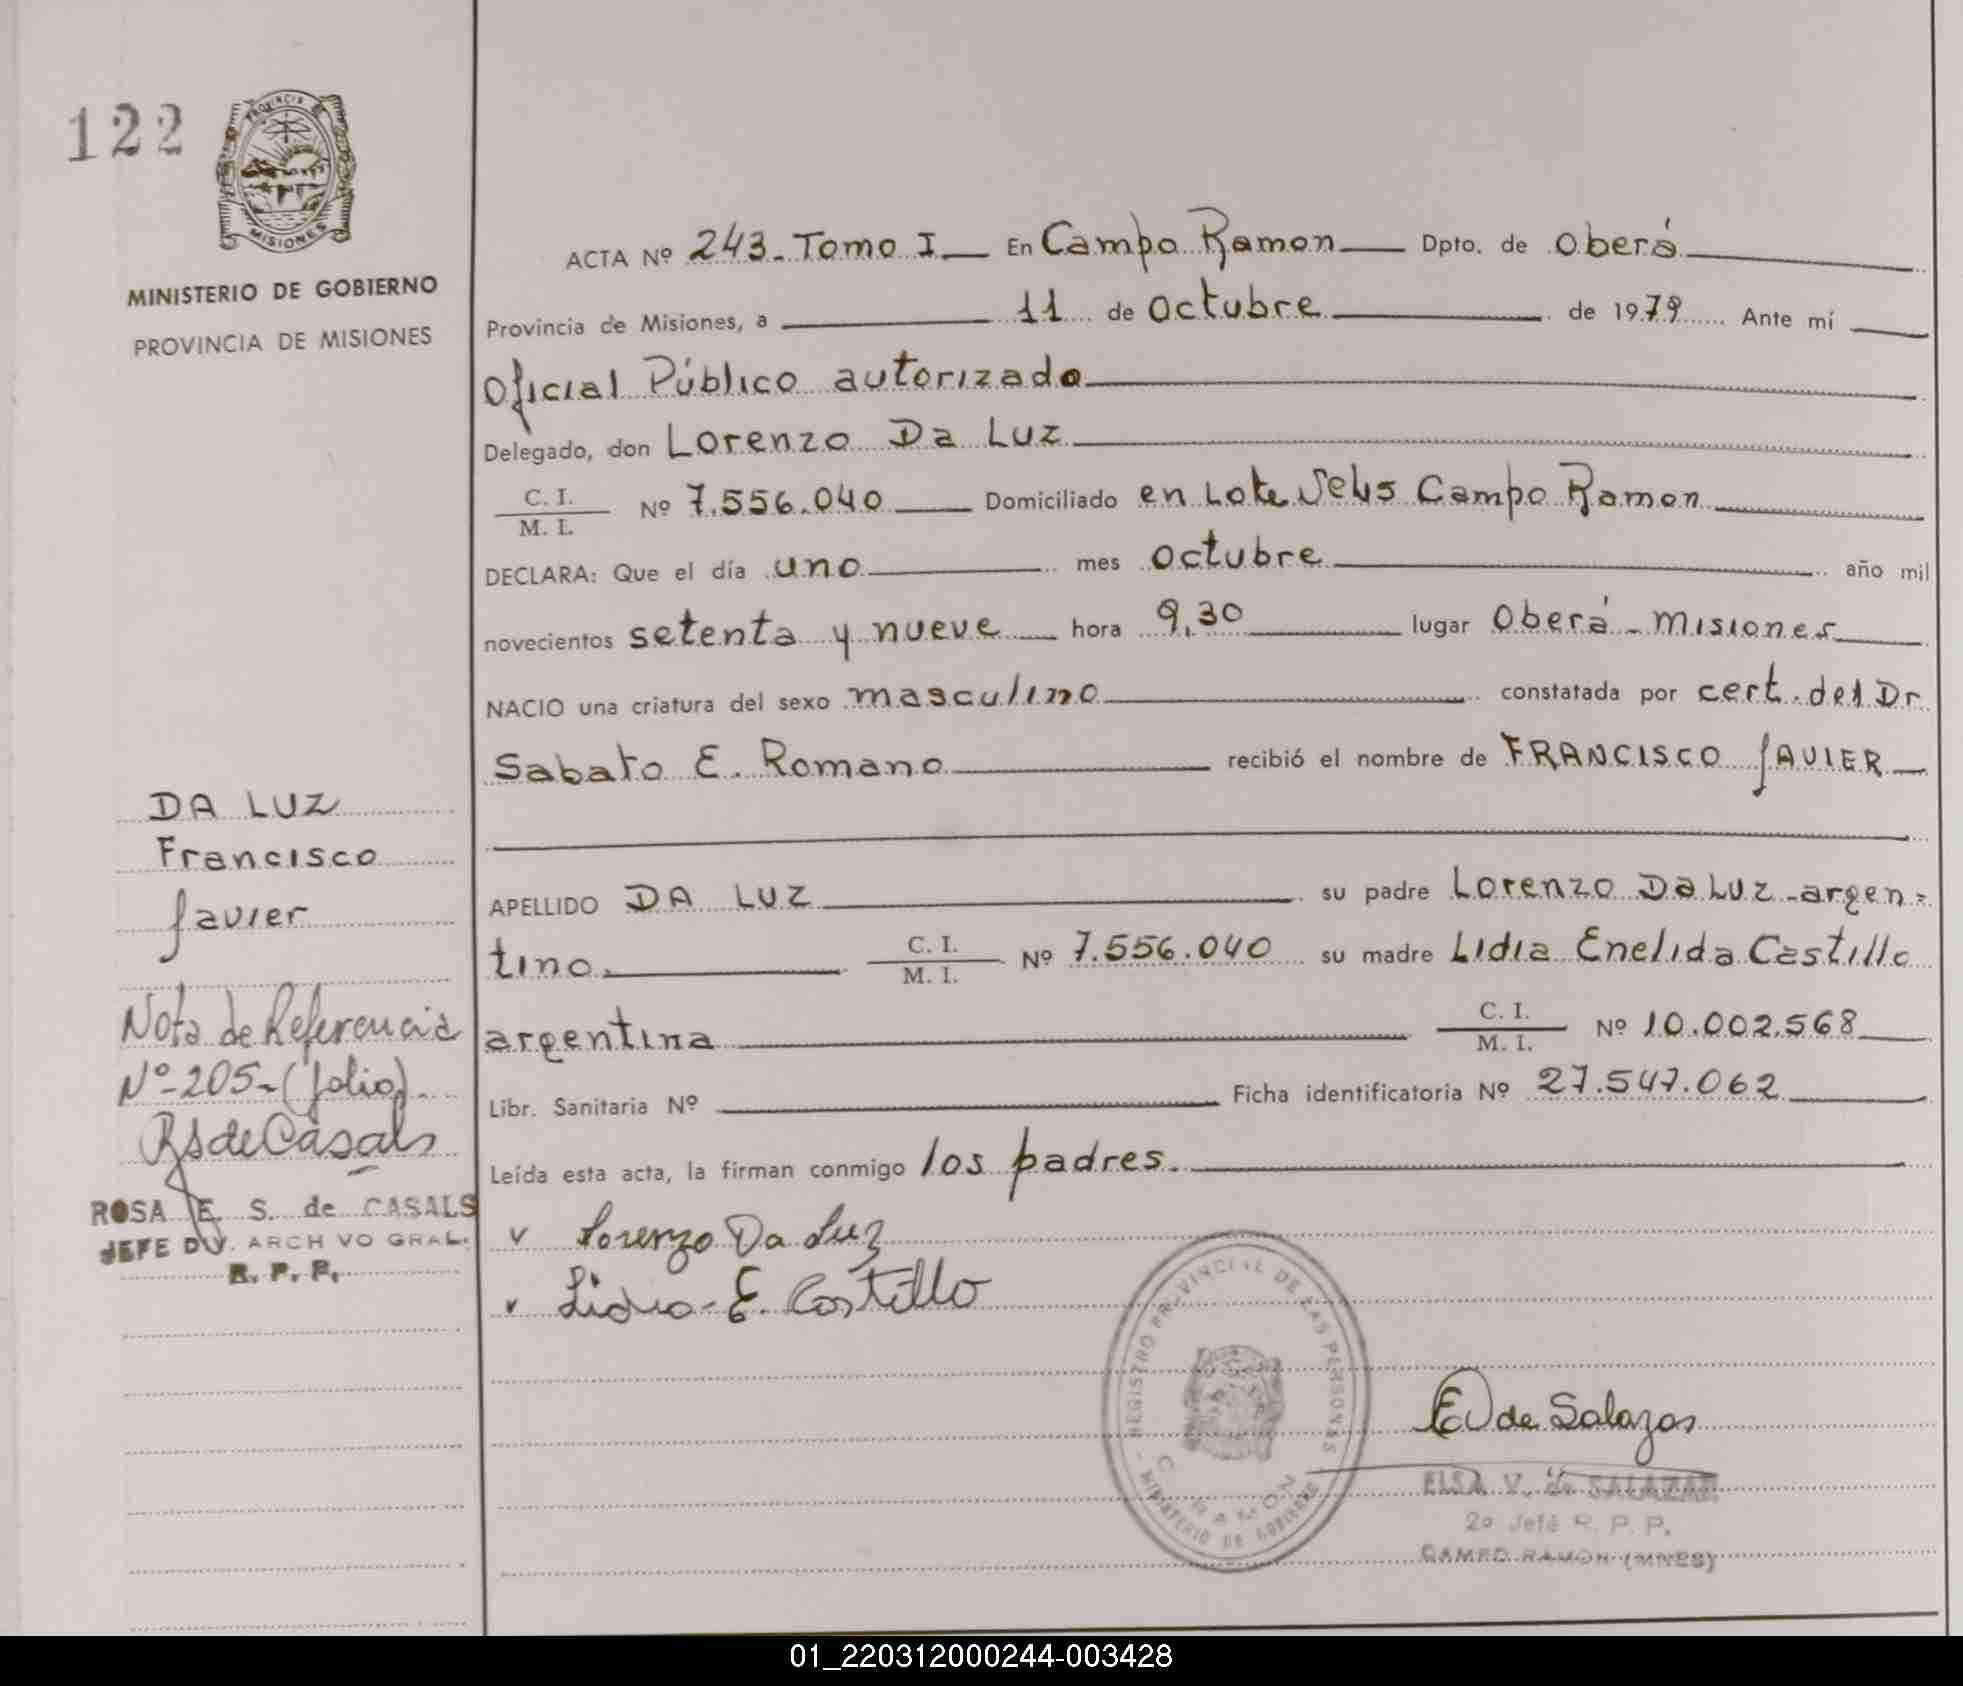 122
PROVINCIA DE
MISIONES
MINISTERIO DE GOBIERNO
PROVINCIA DE MISIONES
DA LUZ
Francisco
Javier
Nota de Referencia
Nº-205-(folio).
RSdeCasals
ROSA E. S. de CASALS
JEFE DIV. ARCHIVO GRAL.
R. P. P.
ACTA Nº 243-Tomo I En Campo Ramon Dpto. de Oberá
Provincia de Misiones, a 11 de octubre de 1979 Ante mí
Oficial Público autorizado
Delegado, don Lorenzo Da Luz
C. I.
M. I. Nº 7.556.040 Domiciliado en Lote Campo Ramon
DECLARA: Que el día uno mes octubre año mil
novecientos setenta y nueve hora 9,30 lugar Oberá - misiones
NACIO una criatura del sexo masculino constatada por cert. del Dr
Sabato E. Romano recibió el nombre de FRANCISCO JAVIER
APELLIDO DA LUZ su padre Lorenzo Da Luz-argen=
tino. C. I.
M. I. Nº 7.556.040 su madre Lidia Enelida Castillo
argentina C. I.
M. I. Nº 10.002.568
Libr. Sanitaria Nº Ficha identificatoria Nº 27.547.062
Leída esta acta, la firman conmigo los padres.
v Lorenzo Da Luz
v Lidia-E. Castillo
REGISTRO PROVINCIAL DE LAS PERSONAS
C. RAMON
MINISTERIO DE GOBIERNO
EV de Salazar
ELSA V. de SALAZAR
2º Jefe R. P. P.
CAMPO RAMON (MNES)
01_220312000244-003428